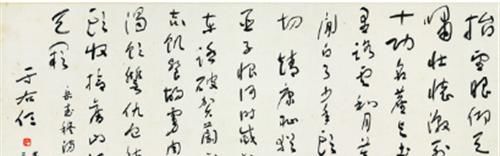 抬望眼仰天
嘯壯懷激烈
十功名塵與土
里路雲和月莫
閒白了少年頭
切靖康恥猶
臣子恨何時滅
車踏破賀蘭
志飢餐胡虜肉
渴飲
頭收拾舊山河
天闕
岳武穆詞
于右任